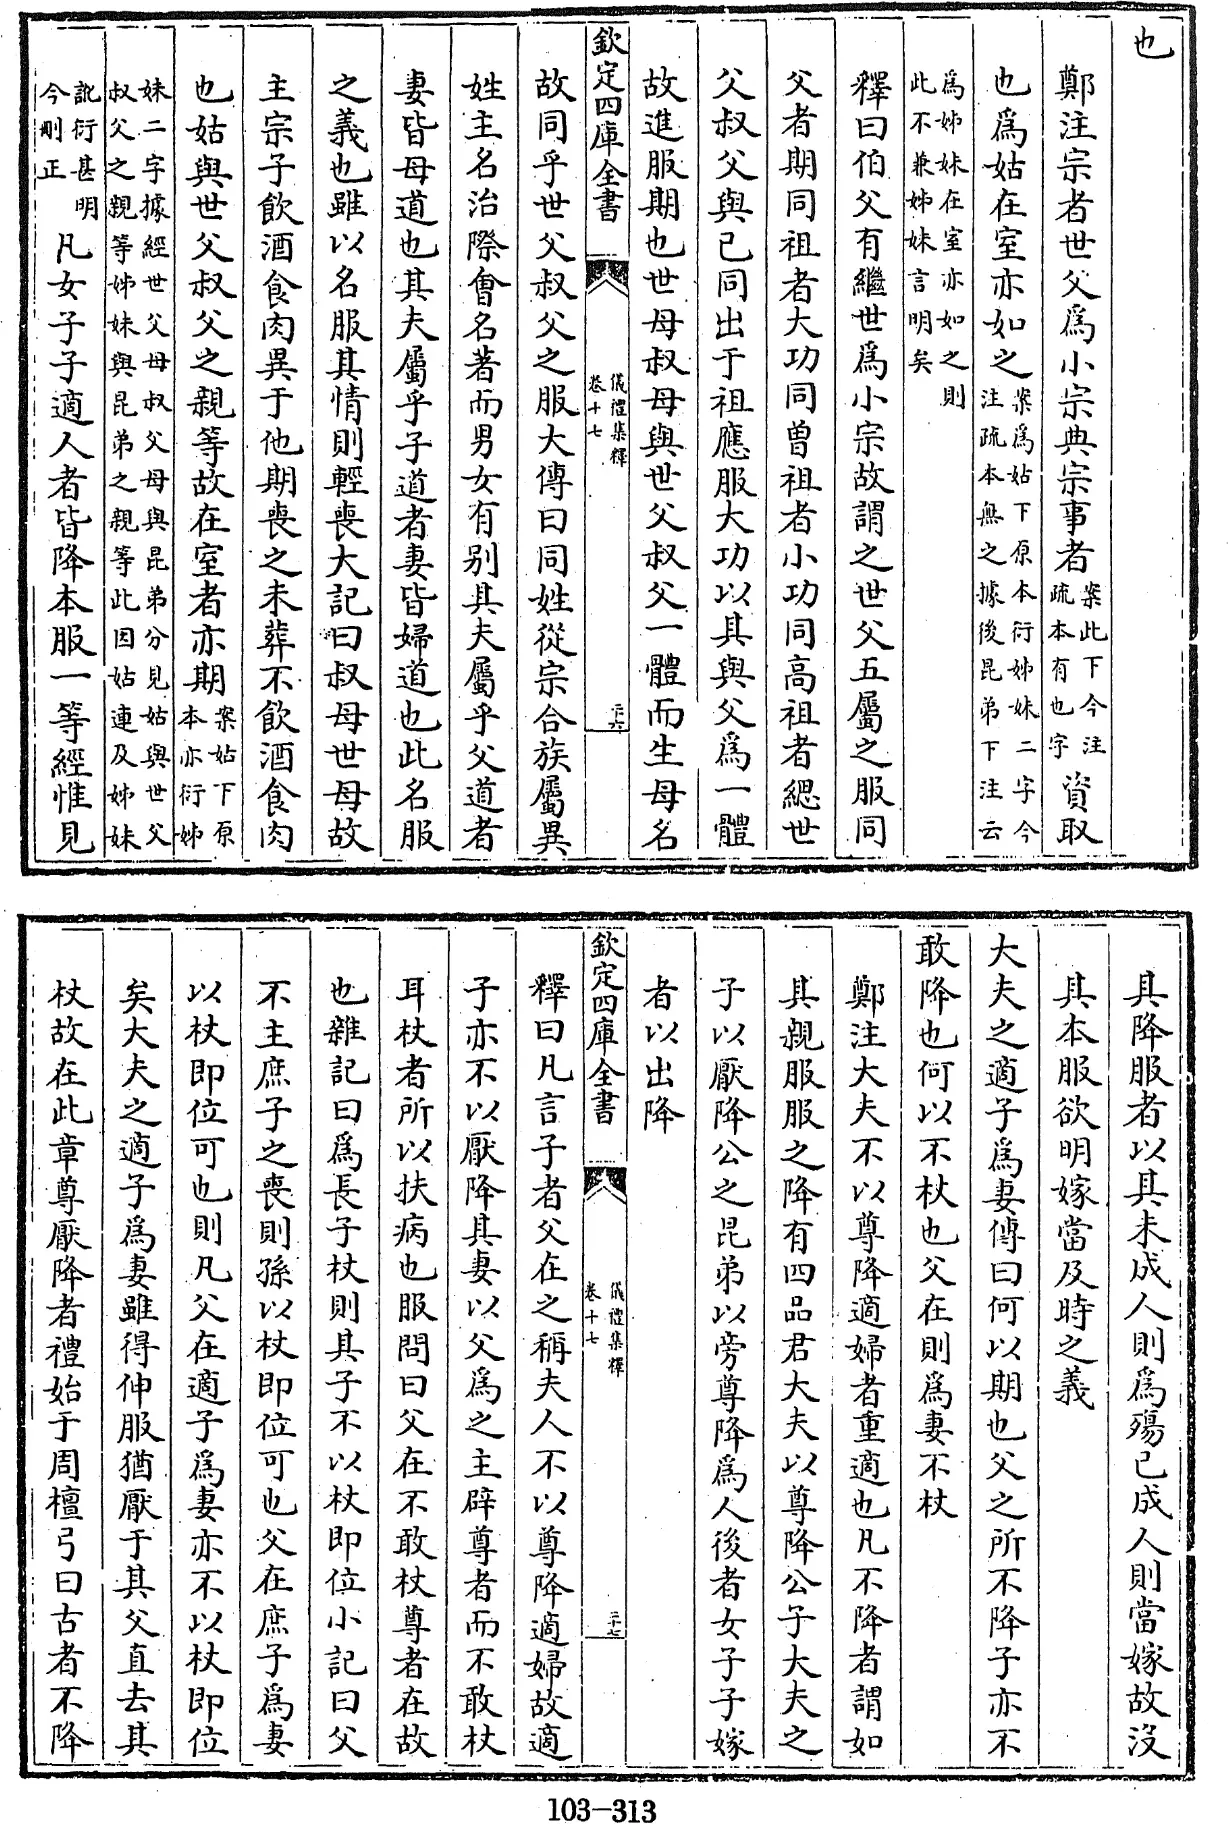 也
鄭注宗者世父爲小宗典宗事者案此下今注疏本有也字資取
也爲姑在室亦如之案爲姑下原本衍姊妹二字今注疏本無之據後昆弟下注云
爲姊妹在室亦如之則此不兼姊妹言明矣
釋曰伯父有繼世爲小宗故謂之世父五屬之服同
父者期同祖者大功同曾祖者小功同高祖者緦世
父叔父與已同出于祖應服大功以其與父爲一體
故進服期也世母叔母與世父叔父一體而生母名
欽定四庫全書
儀禮集釋
卷十七
二十六
故同乎世父叔父之服大傳曰同姓從宗合族屬異
姓主名治際會名著而男女有别其夫屬乎父道者
妻皆母道也其夫屬乎子道者妻皆婦道也此名服
之義也雖以名服其情則輕喪大記曰叔母世母故
主宗子飲酒食肉異于他期喪之未葬不飲酒食肉
也姑與世父叔父之親等故在室者亦期案姑下原本亦衍姊
妹二字據經世父母叔父母與昆弟分見姑與世父叔父之親等姊妹與昆弟之親等此因姑連及姊妹
訛衍甚明今刪正凡女子子適人者皆降本服一等經惟見
具降服者以其未成人則爲殤已成人則當嫁故没
其本服欲明嫁當及時之義
大夫之適子爲妻傳曰何以期也父之所不降子亦不
敢降也何以不杖也父在則爲妻不杖
鄭注大夫不以尊降適婦者重適也凡不降者謂如
其親服服之降有四品君大夫以尊降公子大夫之
子以厭降公之昆弟以旁尊降爲人後者女子子嫁
者以出降
欽定四庫全書
儀禮集釋
卷十七
二十七
釋曰凡言子者父在之稱夫人不以尊降適婦故適
子亦不以厭降其妻以父爲之主辟尊者而不敢杖
耳杖者所以扶病也服問曰父在不敢杖尊者在故
也雜記曰爲長子杖則其子不以杖即位小記曰父
不主庶子之喪則孫以杖即位可也父在庶子爲妻
以杖即位可也則凡父在適子爲妻亦不以杖即位
矣大夫之適子爲妻雖得伸服猶厭于其父直去其
杖故在此章尊厭降者禮始于周檀弓曰古者不降
103-313